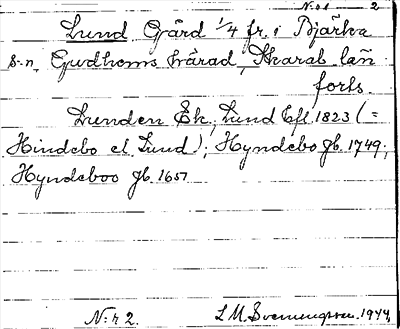 N:o 1 2
Lund Gård 1/4 fr. i Bjärka
s-n, Gudhems härad, Skarab. län
forts.
Lunden Ek.; Lund Efl. 1823 (=
Hindebo el. Lund); Hyndebo Jb. 1749;
Hyndeboo Jb. 1651
N:r 2. 1944